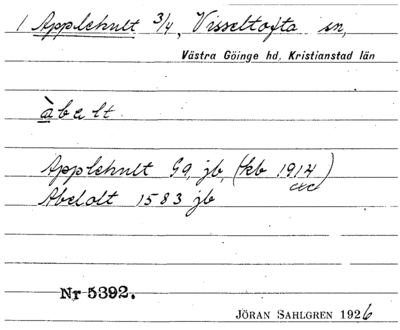 1 Applehult 3/4, Visseltofta sn,
Västra Göinge hd, Kristianstad län
àbelt.
Applehult Gg, jb, (kb 1914)
Abelolt 1583 jb
Nr 5392.
JÖRAN SAHLGREN 1926